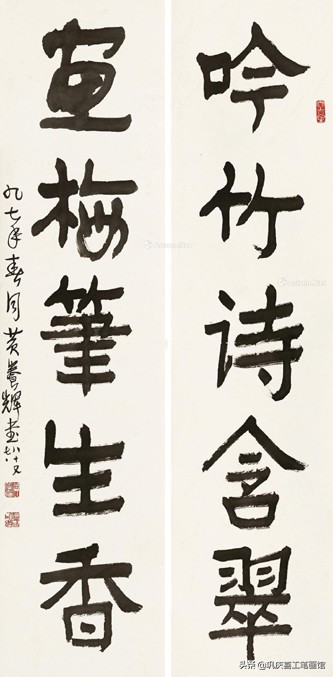 吟竹诗含翠
画梅筆生香
九七年春月黄養輝
头条 @巩庆喜工笔画馆